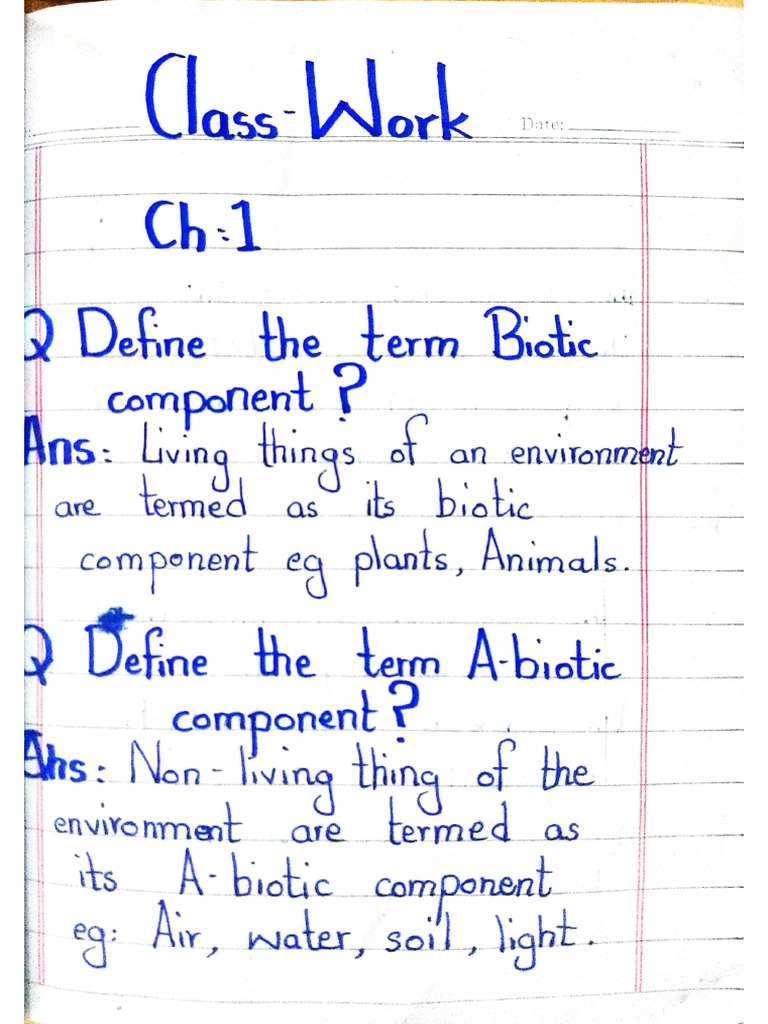 Class-Work
Date:
Ch:1
Q Define the term Biotic
component?
Ans: Living things of an environment
are termed as its biotic
component eg plants, Animals.
Q Define the term A-biotic
component?
Ans: Non-living thing of the
environment are termed as
its A-biotic component
eg: Air, water, soil, light.